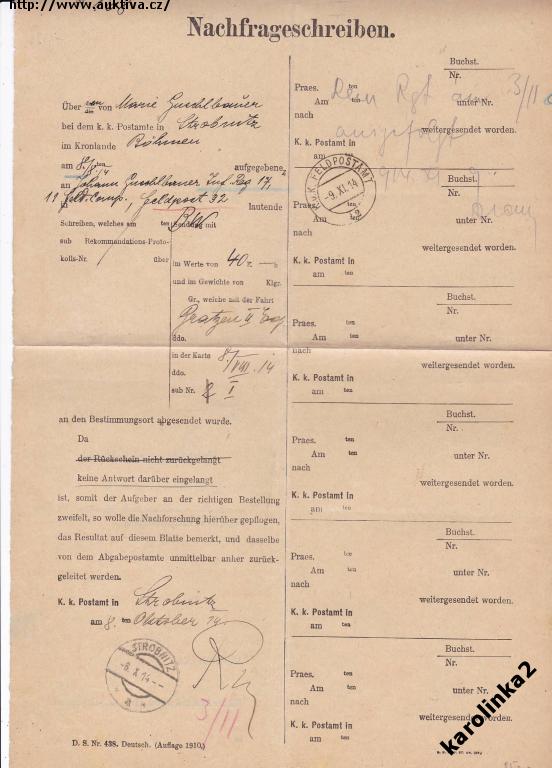 http://www.auktiva.cz/
Nachfrageschreiben.
Über von Marie Guschlbauer
bei dem k. k. Postamte in Strobnitz
im Kronlande Böhmen
am 8./ ten aufgegebene
an Johann Guschlbauer Inf. Reg 17,
Feldpost 32 lautende
Schreiben, welches am ten Sendung mit
sub Rekommandations-Proto-
kolls-Nr. über
im Werte von 40 K — h
und im Gewichte von Klgr.
Gr., welche mit der Fahrt
Gratzen II
ddo.
in der Karte 8./VIII. 14
ddo.
sub Nr. I
an den Bestimmungsort abgesendet wurde.
Da
der Rückschein nicht zurückgelangt
keine Antwort darüber eingelangt
ist, somit der Aufgeber an der richtigen Bestellung
zweifelt, so wolle die Nachforschung hierüber gepflogen,
das Resultat auf diesem Blatte bemerkt, und dasselbe
von dem Abgabepostamte unmittelbar anher zurück-
geleitet werden.
K. k. Postamt in Strobnitz
am 8. ten Oktober 14
STROBNITZ
-8. X. 14--
* a *
3/11
D. S. Nr. 438. Deutsch. (Auflage 1910.)
Buchst.
Nr.
Praes. ten
Dem Rgt am 3/11
Am unter Nr.
nach
ausgefolgt
weitergesendet worden.
K. k. Postamt in
am ten
K.u.K. FELDPOSTAMT
-9. XI. 14
Buchst.
Nr.
Praes. ten
Am unter Nr.
nach
weitergesendet worden.
K. k. Postamt in
am ten
Buchst.
Nr.
Praes. ten
Am unter Nr.
nach
weitergesendet worden.
K. k. Postamt in
am ten
Buchst.
Nr.
Praes. ten
Am unter Nr.
nach
weitergesendet worden.
K. k. Postamt in
am ten
Buchst.
Nr.
Praes. ten
Am unter Nr.
nach
weitergesendet worden.
K. k. Postamt in
am ten
Buchst.
Nr.
Praes. ten
Am unter Nr.
nach
weitergesendet worden.
K. k. Postamt in
am ten
karolinka2